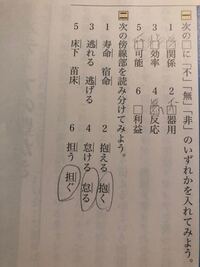 一 次の□に「不」「無」「非」のいずれかを入れてみよう。
1 □関係 2 □器用
3 □効率 4 □反応
5 □可能 6 □利益
二 次の傍線部を読み分けてみよう。
1 寿命 宿命 2 抱える 抱く
3 逃れる 逃げる 4 怠ける 怠る
5 床下 苗床 6 担う 担ぐ